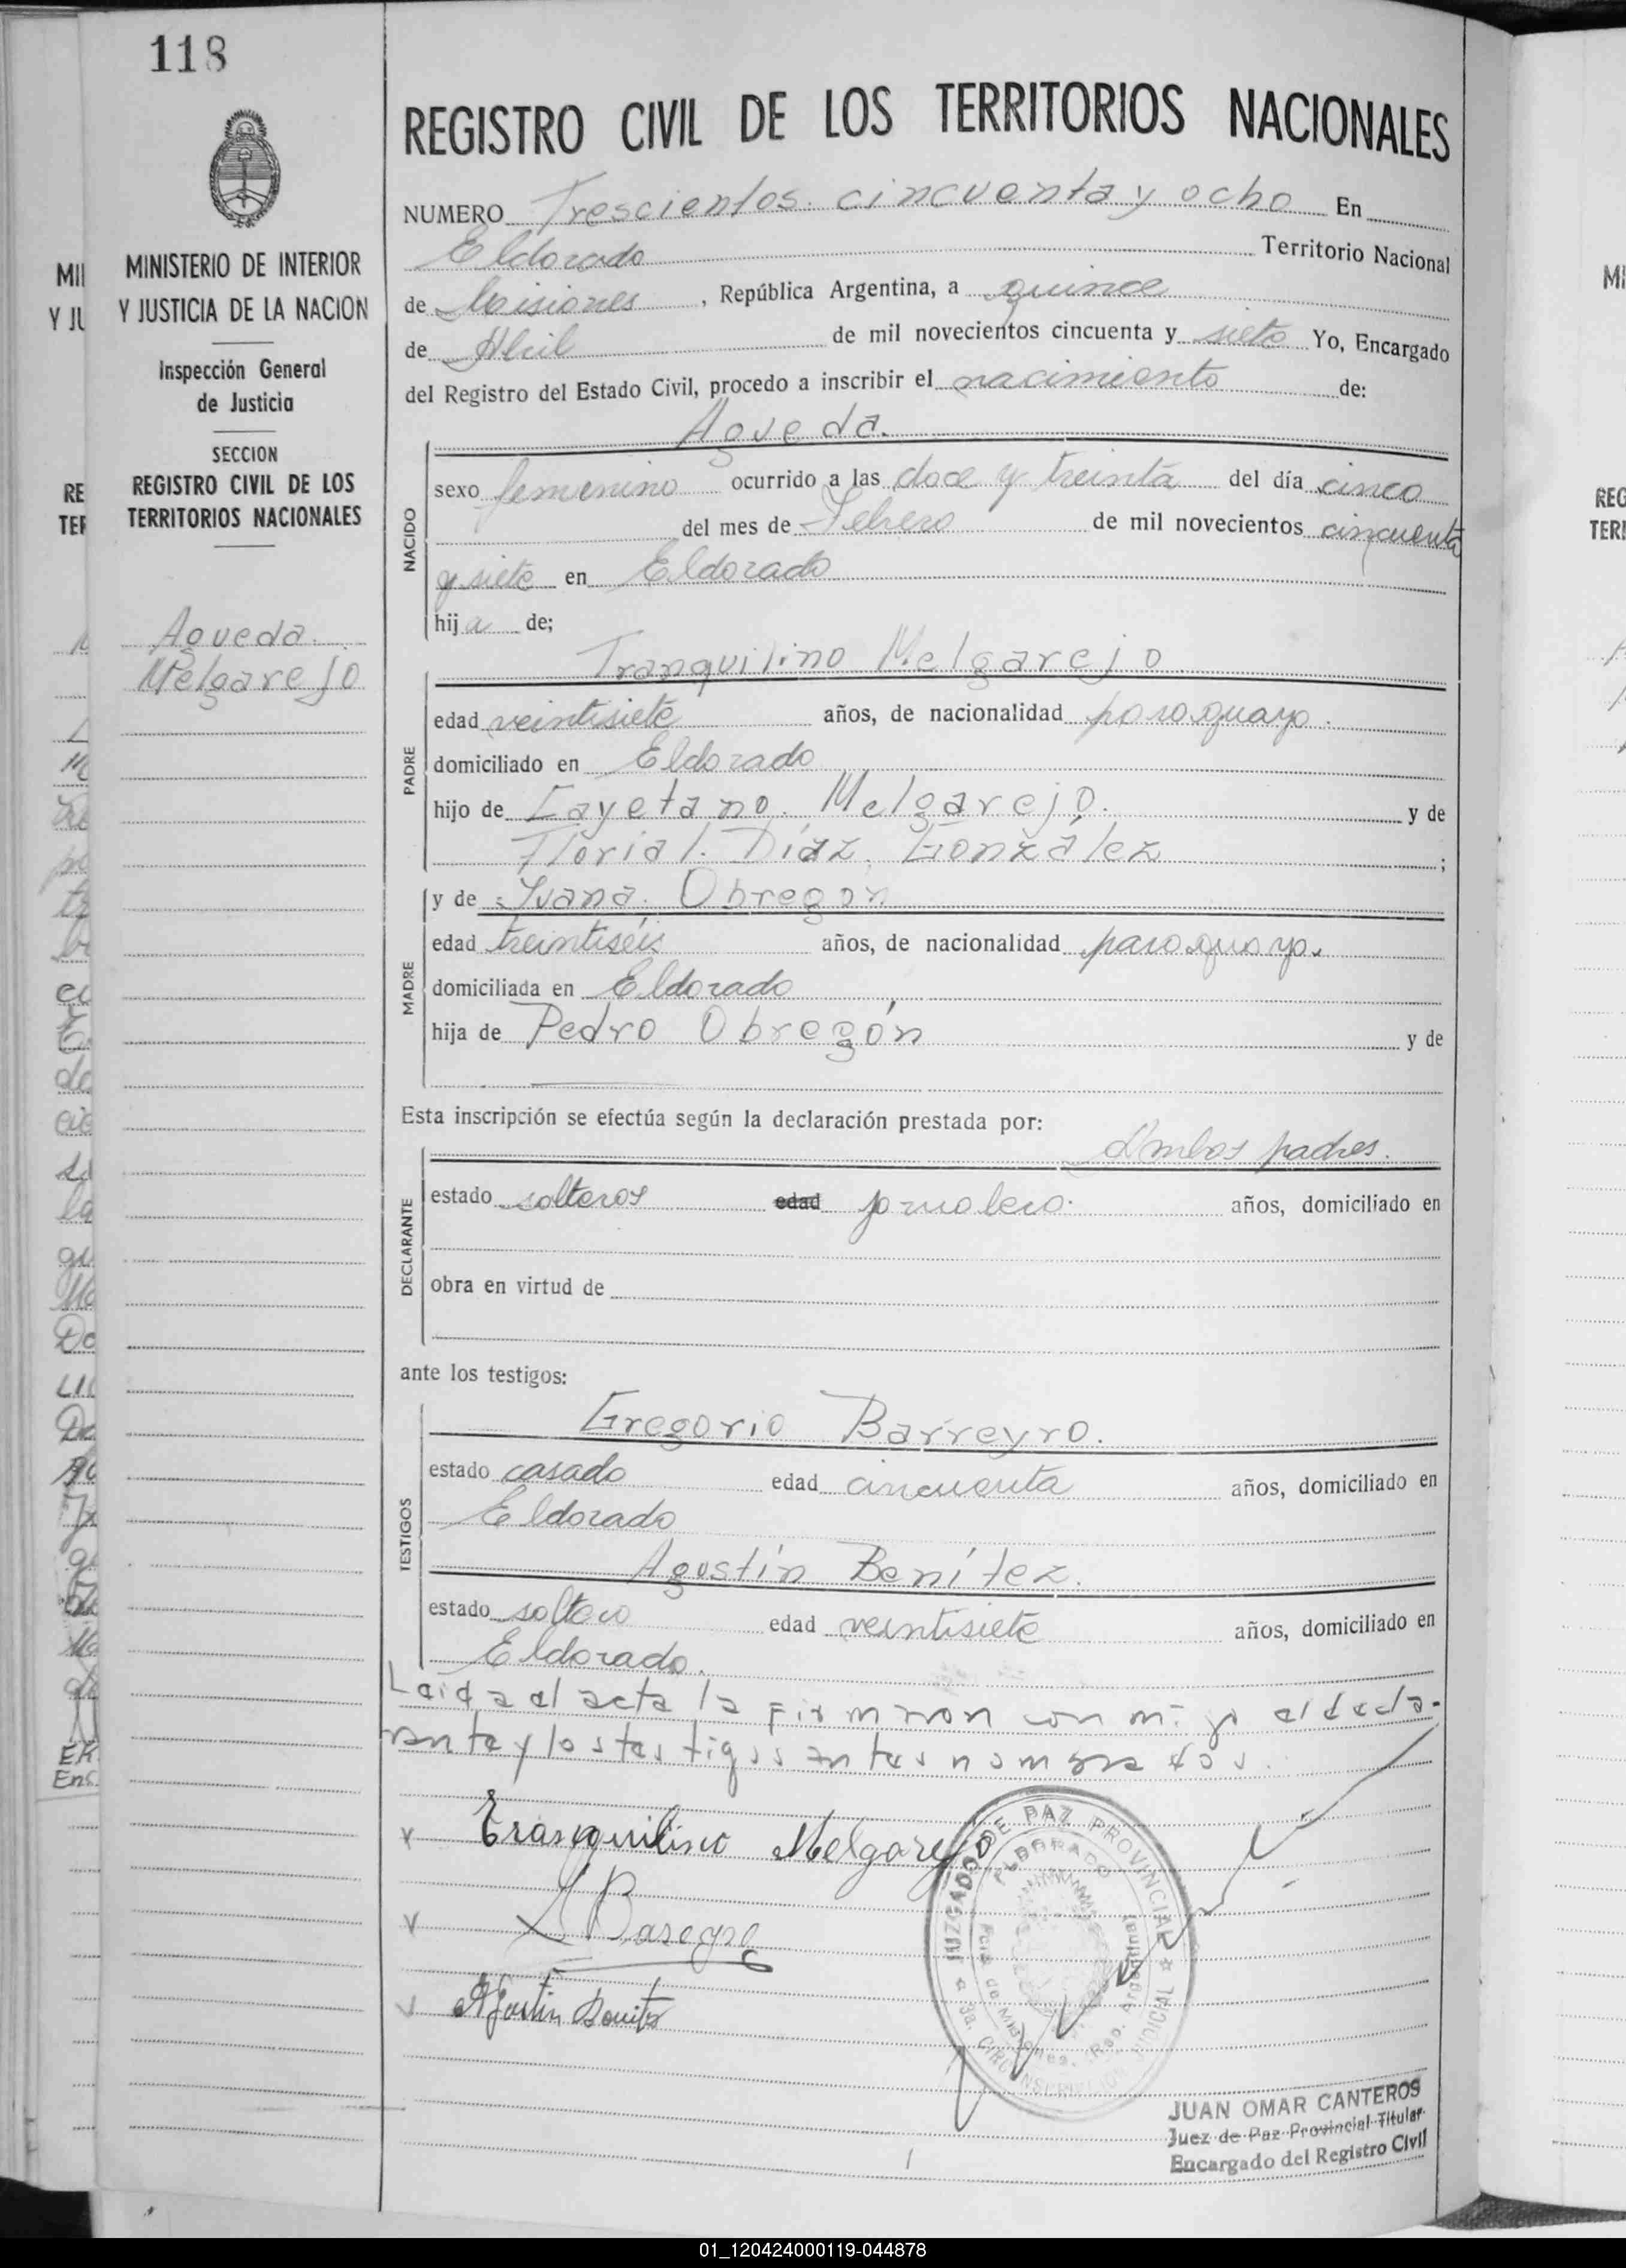 118
REGISTRO CIVIL DE LOS TERRITORIOS NACIONALES
MINISTERIO DE INTERIOR
Y JUSTICIA DE LA NACION
Inspección General
de Justicia
SECCION
REGISTRO CIVIL DE LOS
TERRITORIOS NACIONALES
Agueda
Melgarejo
NUMERO Trescientos cincuenta y ocho En
Eldorado Territorio Nacional
de Misiones, República Argentina, a quince
de Abril de mil novecientos cincuenta y siete Yo, Encargado
del Registro del Estado Civil, procedo a inscribir el nacimiento de:
Agueda.
NACIDO
sexo femenino ocurrido a las doce y treinta del día cinco
del mes de Febrero de mil novecientos cincuenta
y siete en Eldorado
hija de;
Tranquilino Melgarejo
PADRE
edad veintisiete años, de nacionalidad paraguayo.
domiciliado en Eldorado
hijo de Cayetano Melgarejo. y de
Diaz González ;
y de Juana Obregon
MADRE
edad treintiséis años, de nacionalidad paraguaya.
domiciliada en Eldorado
hija de Pedro Obregón y de
Esta inscripción se efectúa según la declaración prestada por:
Ambos padres.
DECLARANTE
estado solteros edad jornalero. años, domiciliado en
obra en virtud de
ante los testigos:
Gregorio Barreyro.
TESTIGOS
estado casado edad cincuenta años, domiciliado en
Eldorado
Agustín Benítez.
estado soltero edad veintisiete años, domiciliado en
Eldorado.
Leida el acta la firmaron con migo el decla-
rante y los testigos antes nombrados.
Tranquilino Melgarejo
Agustin Benitez
JUZGADO DE PAZ PROVINCIAL
ELDORADO
Pcia. de Misiones. Rep. Argentina
3a. CIRCUNSCRIPCION JUDICIAL
JUAN OMAR CANTEROS
Juez de Paz Provincial Titular
Encargado del Registro Civil
01_120424000119-044878